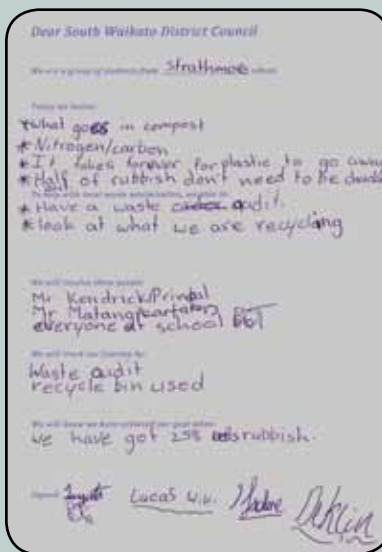 Dear South Waikato District Council
We are a group of students from Strathmore school
Today we learnt:
*what goes in compost
*Nitrogen/carbon
*It takes forever for plastic to go away
*Half of rubbish don't need to be
*Have a waste audit.
*look at what we are recycling
We will involve these people:
Mr Kendrick/
Mr
everyone at school
We will track our learning by:
Waste audit
recycle bin used
We will know we have achieved our goal when:
we have got 25% rubbish.
Signed
Lucas